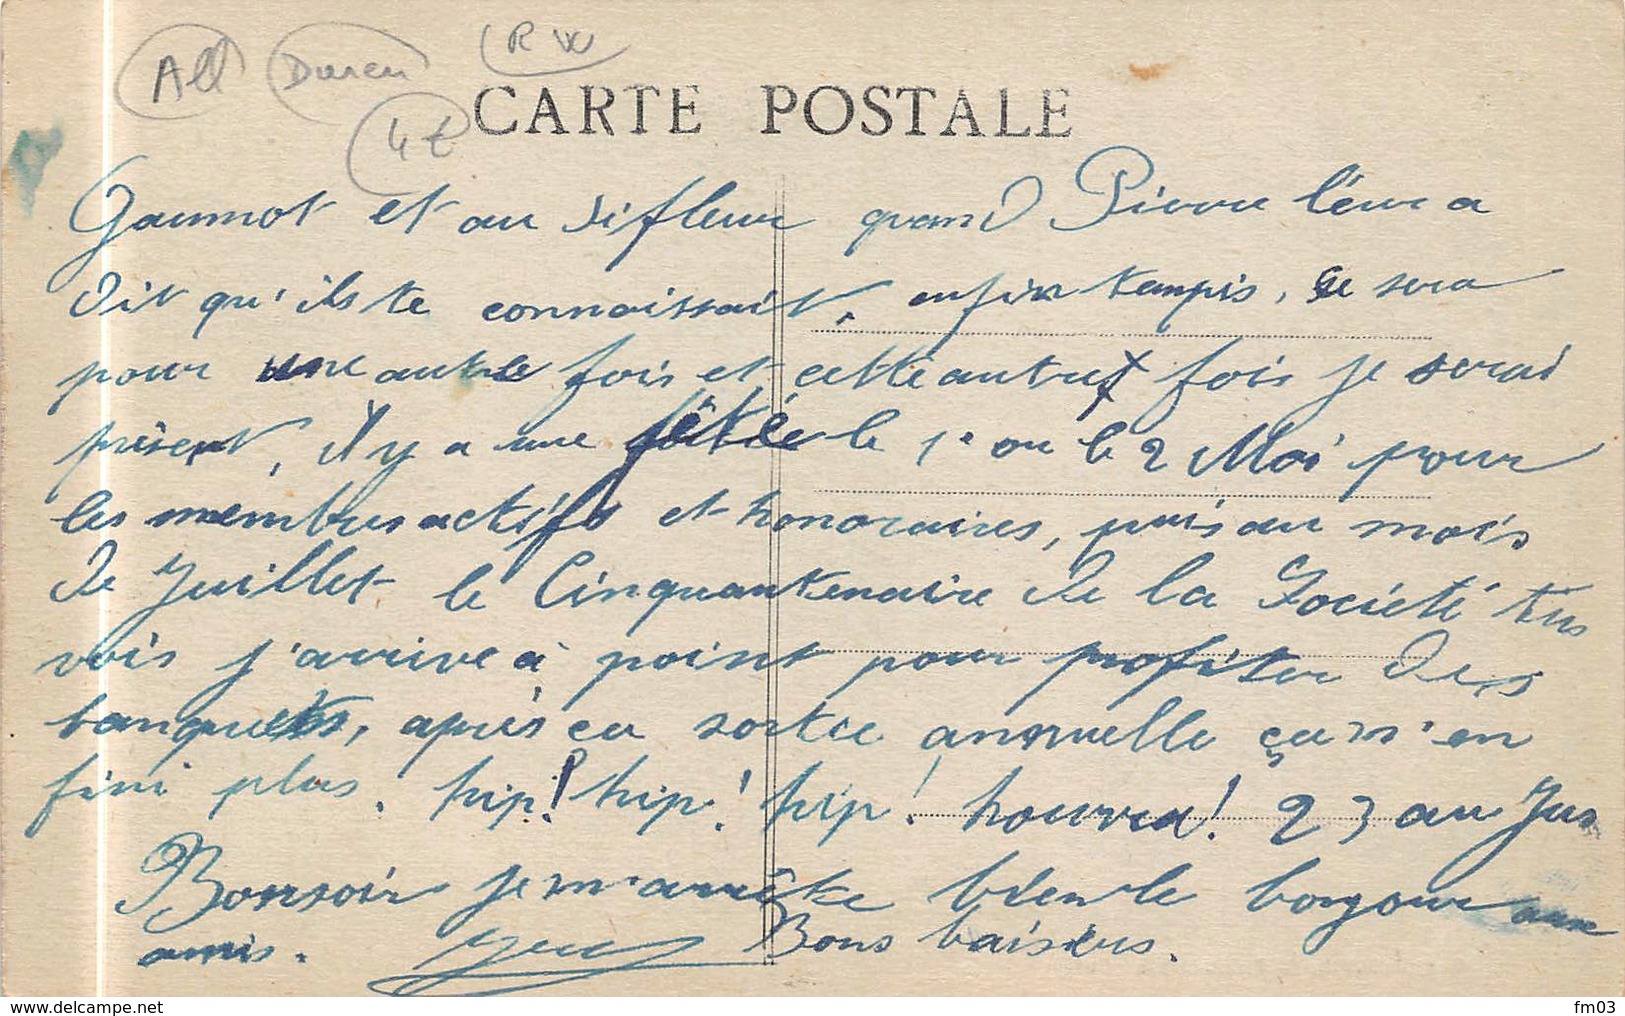 All Düren RW
4 €
CARTE POSTALE
Gaumot et au sifleur quand Pierre leur a
dit qu'ils te connaissait, enfin tempis, se sera
pour une autre fois et cette autre fois je serai
présent, il y a une fête le 1° ou le 2 Mai pour
les membres actifs et honoraires, puis au mois
de Juillet le Cinquantenaire de la Société tu
vois j'arrive à point pour profiter des
banquets, après ca sortie annuelle ça n'en
fini plus. hip! hip! hip! hourra! 23 au Jus
Bonsoir je m'arrête bien le bonjour aux
amis. Bons baisers.
delcampe.net
fm03